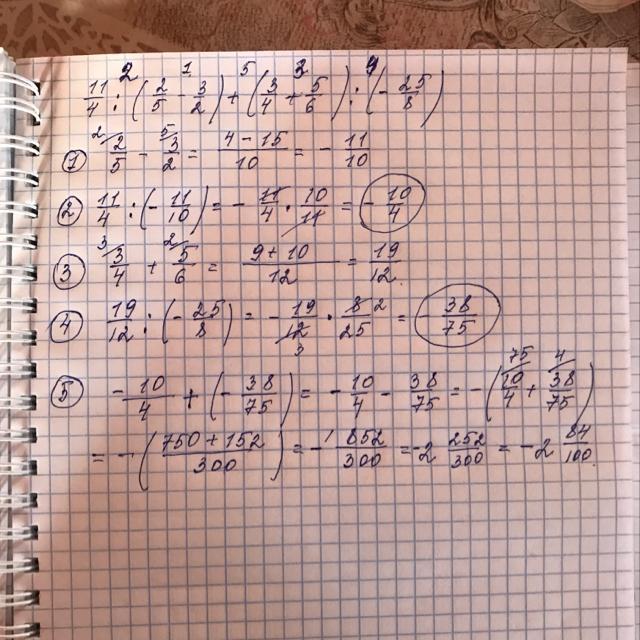 2 1 5 3 4
11/4 : (2/5 - 3/2) + (3/4 + 5/6) : (- 25/8)
① 2/ 2/5 - 5/ 3/2 = 4 - 15/10 = - 11/10
② 11/4 : (- 11/10) = - 11/4 · 10/11 = - 10/4
③ 3/ 3/4 + 2/ 5/6 = 9 + 10/12 = 19/12
④ 19/12 : (- 25/8) = - 19/12 3 · 8/25 2 = - 38/75
⑤ - 10/4 + (- 38/75) = - 10/4 - 38/75 = - (75/ 10/4 + 4/ 38/75)
= - (750 + 152/300) = - 852/300 = - 2 252/300 = - 2 84/100